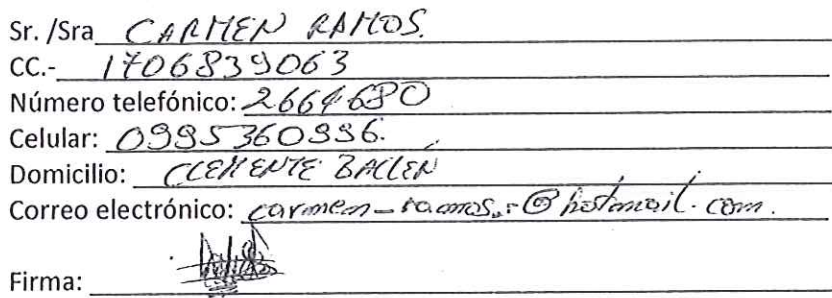 Sr. /Sra CARMEN RAMOS.
CC.- 1706839063
Número telefónico: 2664690
Celular: 0995360996.
Domicilio: CLEMENTE BALLEN
Correo electrónico: carmen_ramos_r@hotmail.com.
Firma: